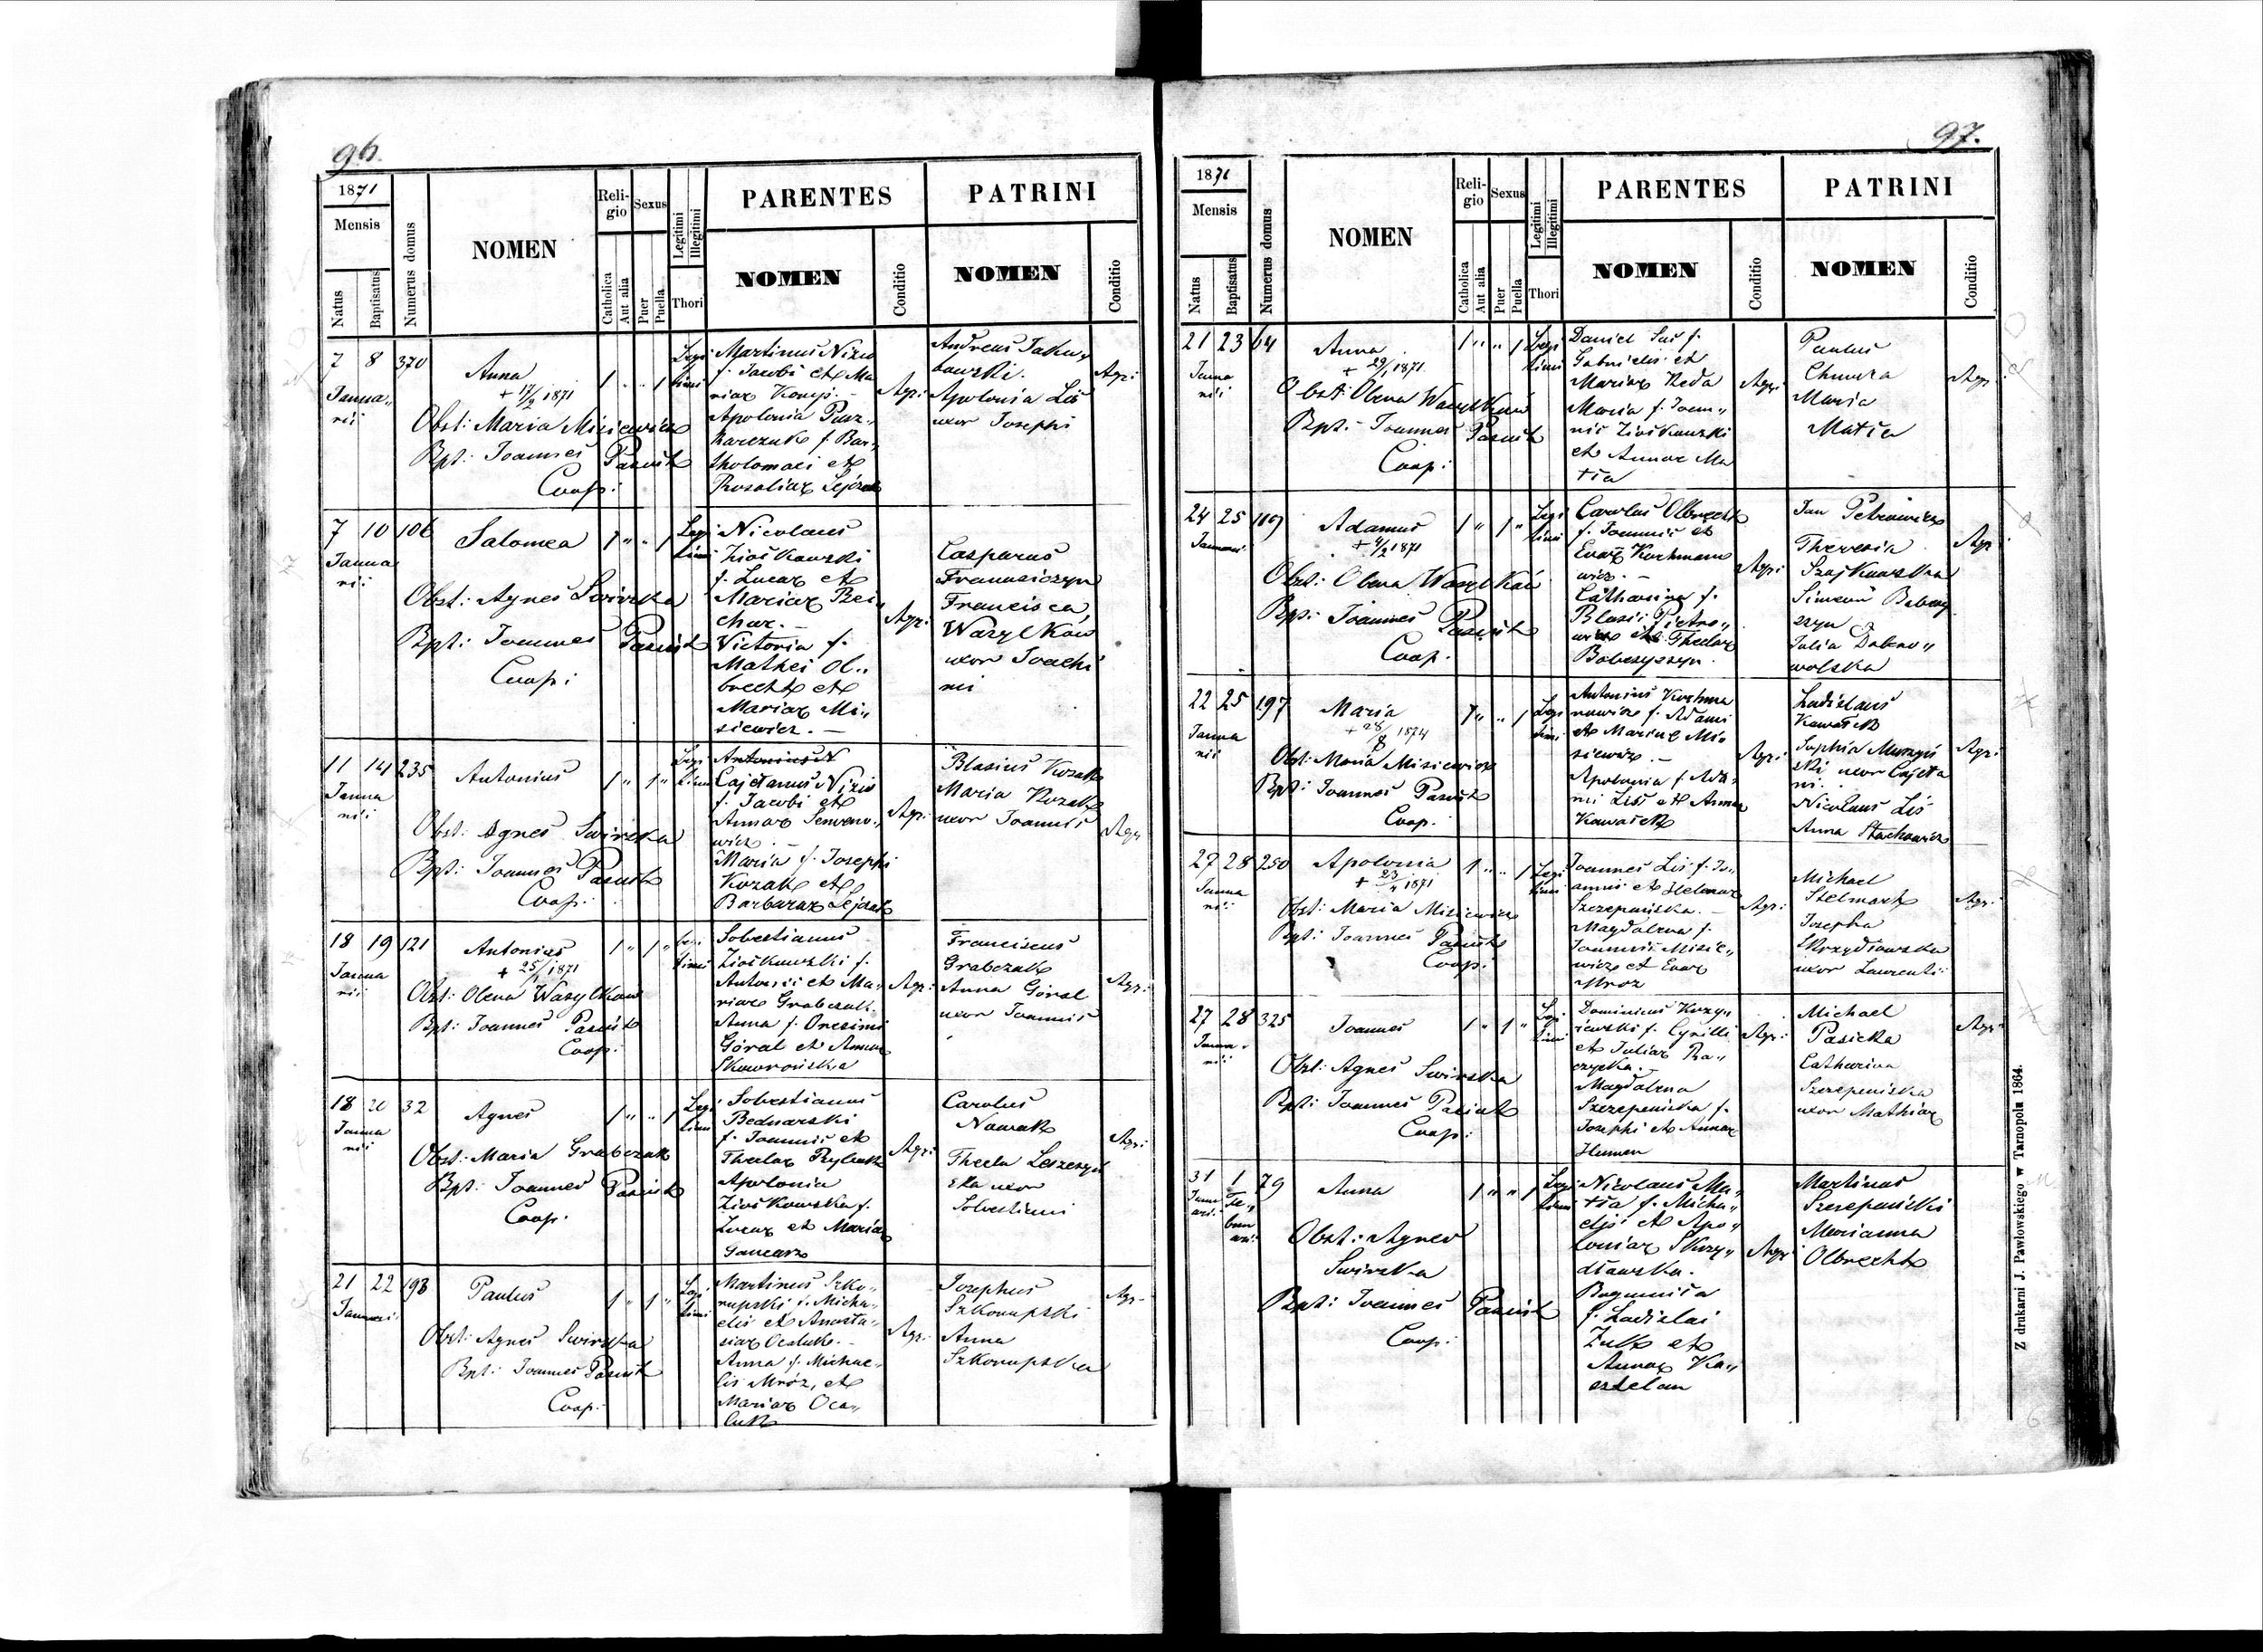 96.
1871
Mensis
Natus
Baptisatus
Numerus domus
NOMEN
Reli-
gio
Catholica
Aut alia
Sexus
Puer
Puella
Legitimi
Illegitimi
Thori
PARENTES
NOMEN
Conditio
PATRINI
NOMEN
Conditio
7 8 370
Janua„
rii
Anna
+ 17/2 1871
Obst: Maria Misiewicz
Bpt: Joannes Pasiut
Coop:
1 „ „ 1
Legi
timi
Martinus Nizio
f. Jacobi et Ma
riae Konys. –
Apolonia Pusz„
karczuk f. Bar„
tholomaei et
Rosaliae Lejczak
Agr:
Andreas Jaku„
bowski.
Apolonia Lis
uxor Josephi
Agr:
7 10 106
Janua
rii
Salomea
Obst: Agnes Swirska
Bpt: Joannes Pasiut
Coop:
1 „ „ 1
Legi
timi
Nicolaus
Ziołkowski
f. Lucae et
Mariae Bei
char. –
Victoria f.
Mathei Ol„
brecht et
Mariae Mi„
siewicz. –
Agr:
Casparus
Franusiczyn
Francisca
Wasylków
uxor Joachi
mi
11 14 235
Janua
rii
Antonius
Obst: Agnes Swirska
Bpt: Joannes Pasiut
Coop:
1 „ 1 „
Legi
timi
Antonius N
Cajetanus Nizio
f. Jacobi et
Annae Semeno„
wicz. –
Maria f. Josephi
Kozak et
Barbarae Lejczak
Agr:
Blasius Kozak
Maria Kozak
uxor Joannis
Agr
18 19 121
Janua
rii
Antonius
+ 25/1 1871
Obst: Olena Wasylkow
Bpt: Joannes Pasiut
Coop:
1 „ 1 „
Legi
timi
Sobestianus
Ziołkowski f.
Antonii et Ma„
riae Grabczuk.
Anna f. Onesimi
Góral et Annae
Skowrońska
Agr:
Franciscus
Grabczak
Anna Góral
uxor Joannis
Agr:
18 20 32
Janua
rii
Agnes
Obst: Maria Grabczak
Bpt: Joannes Pasiut
Coop.
1 „ „ 1
Legi
timi
Sobestianus
Bednarski
f. Joannis et
Theclae
Apolonia
Ziołkowska f.
Lucae et Mariae
Gancarz
Agr:
Carolus
Nowak
Thecla Leszczyń
ska uxor
Sobestiani
Agr:
21 22 198
Januarii
Paulus
Obst: Agnes Swirska
Bpt: Joannes Pasiut
Coop:
1 „ 1 „
Legi
timi
Martinus Szko„
rupski f. Micha„
elis et Anasta„
siae Ocaluk. –
Anna f. Michae„
lis Mróz, et
Mariae Oca„
luk
Agr:
Josephus
Szkorupski
Anna
Szkorupska
Agr.
97.
1871
Mensis
Natus
Baptisatus
Numerus domus
NOMEN
Reli-
gio
Catholica
Aut alia
Sexus
Puer
Puella
Legitimi
Illegitimi
Thori
PARENTES
NOMEN
Conditio
PATRINI
NOMEN
Conditio
21 23 64
Janua
rii
Anna
+ 29/1 1871
Obst: Olena Wasylków
Bpt: Joannes Pasiut
Coop:
1 „ „ 1
Legi
timi
Daniel Sus f.
Gabrielis et
Mariae Reda
Maria f. Joan„
nis Ziołkowski
et Annae Ma
tła
Agr:
Paulus
Chmura
Maria
Matła
Agr:
24 25 109
Januarii
Adamus
+ 4/2 1871
Obst: Olena Wasylków
Bpt: Joannes Pasiut
Coop.
1 „ 1 „
Legi
timi
Carolus Olbrecht
f. Joannis et
Evae Kochmano
wicz. –
Catharina f.
Blasii Pietro„
wicz et Theclae
Babczyszyn.
Agr:
Jan Petrowicz
Theresia
Szajkowska
Simeon Babczy
szyn
Julia Dobro„
wolska
Agr
22 25 197
Janua
rii
Maria
+ 28/8 1874
Obst: Maria Misiewicz
Bpt: Joannes Pasiut
Coop.
1 „ „ 1
Legi
timi
Antonius Kochma
nowicz f. Adami
et Mariae Mi„
siewicz. –
Apolonia f. Ada„
mi Lis et Annae
Kawałek
Agr:
Ladislaus
Kawałek
Sophia Muszyń
ski uxor Cajeta
ni.
Nicolaus Lis
Anna Stachowicz
Agr:
27 28 250
Janua
rii
Apolonia
+ 23/4 1871
Obst: Maria Misiewicz
Bpt: Joannes Pasiut
Coop:
1 „ „ 1
Legi
timi
Joannes Lis f. Jo„
annis et Helenae
Szczepańska. –
Magdalena f.
Joannis Misie„
wicz et Evae
Mroz
Agr:
Michael
Stelmach
Josepha
Skrzydłowska
uxor Laurentii
Agr:
27 28 325
Janua
rii
Joannes
Obst: Agnes Swirska
Bpt: Joannes Pasiut
Coop:
1 „ 1 „
Legi
timi
Dominicus Krzy„
żewski f. Cyrilli
et Juliae Ra„
czycka.
Magdalena
Szczepańska f.
Josephi et Annae
Humen
Agr:
Michael
Pasieka
Catharina
Szczepańska
uxor Mathiae
Agr:
31 1 79
Janu
arii
Fe„
bru
arii
Anna
Obst: Agnes
Swirska
Bpt: Joannes Pasiut
Coop:
1 „ „ 1
Legi
timi
Nicolaus Ma„
tła f. Micha„
elis et Apo„
loniae Skrzy„
dłowska.
Bogumiła
f. Ladislai
Żuk et
Annae Ka„
sztelan
Agr:
Martinus
Szczepański
Marianna
Olbrecht
Z drukarni J. Pawłowskiego w Tarnopolu 1864.